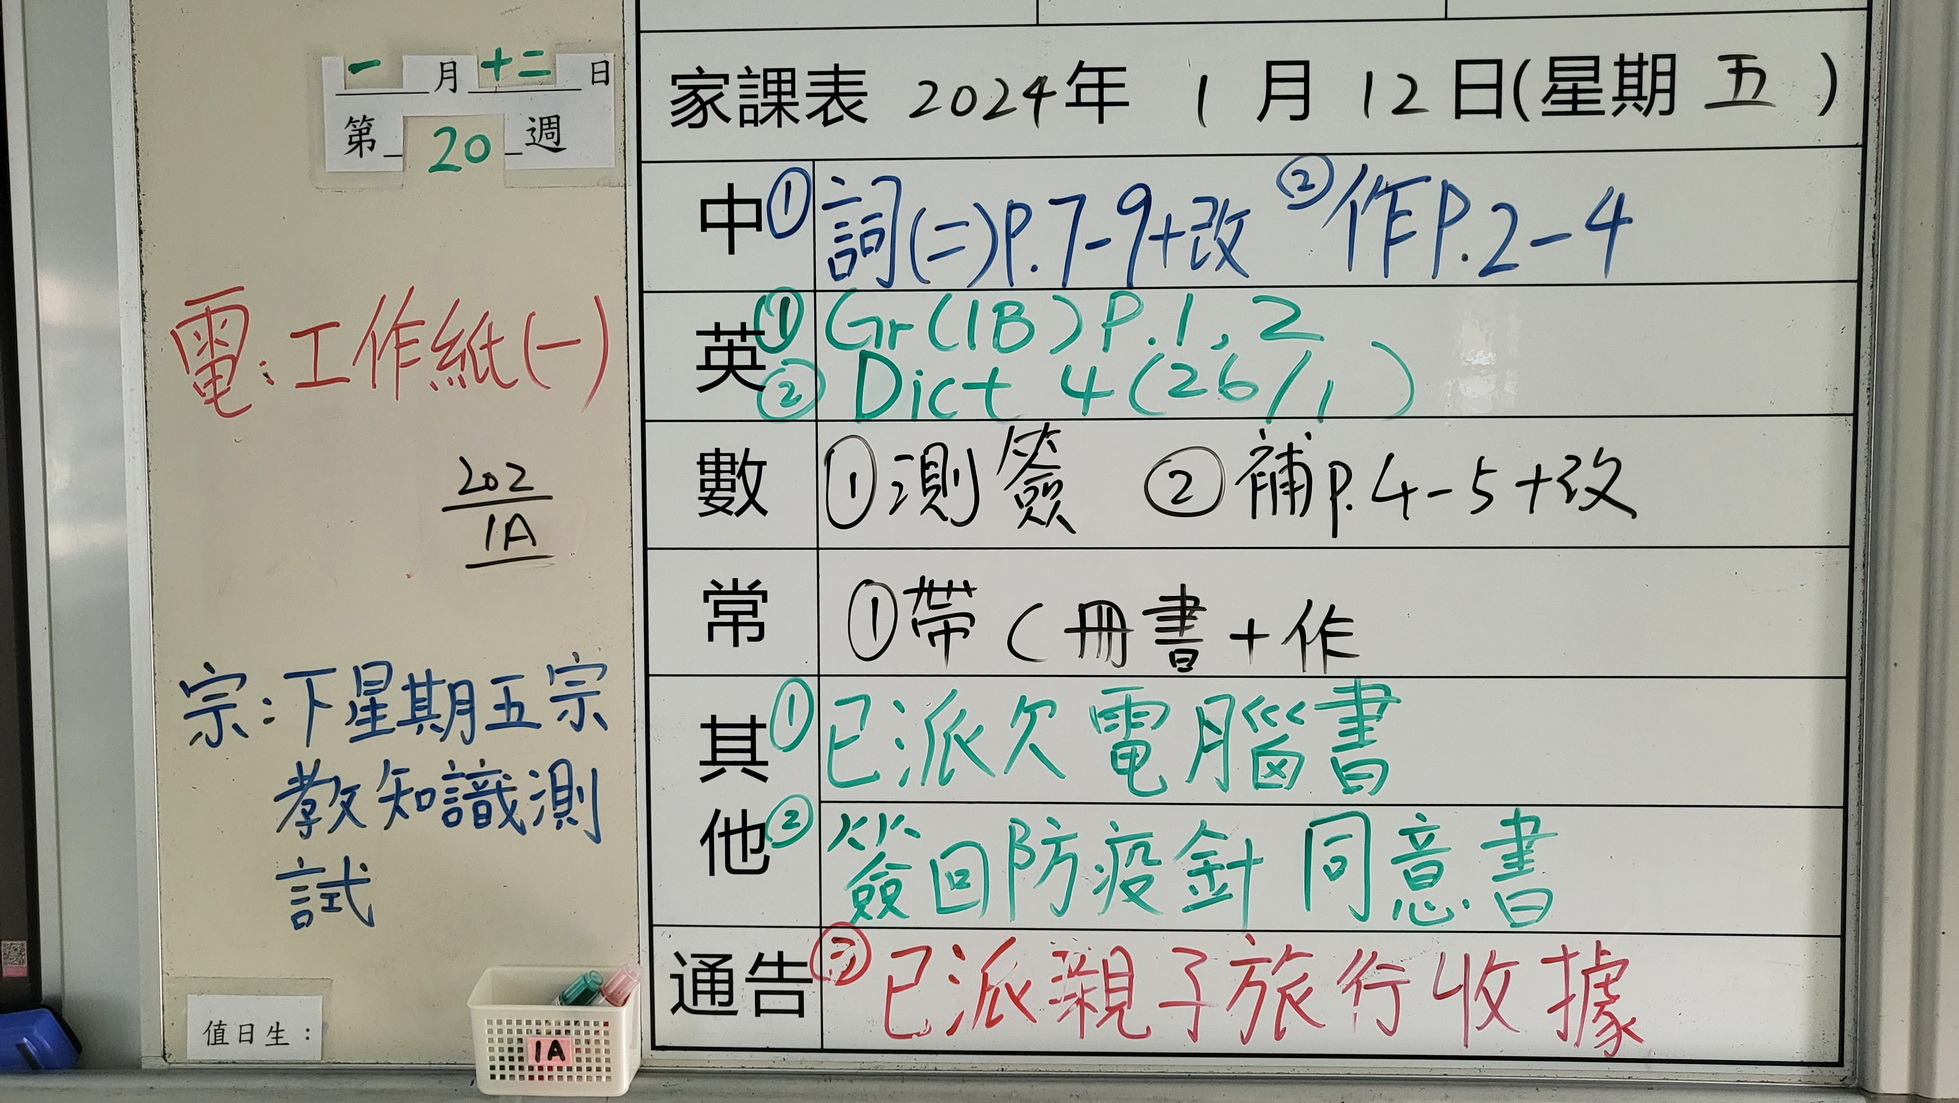 一月十二日
第20週
電:工作紙(一)
202
1A
宗:下星期五宗
教知識測
試
值日生:
1A
家課表 2024年 1月12日(星期五)
中 ①詞(二)P.7-9+改 ②作P.2-4
英 ①Gr(1B)P.1,2
②Dict 4(26/1)
數 ①測簽 ②補P.4-5+改
常 ①帶C冊書+作
其他 ①已派欠電腦書
②簽回防疫針同意書
通告 ③已派親子旅行收據